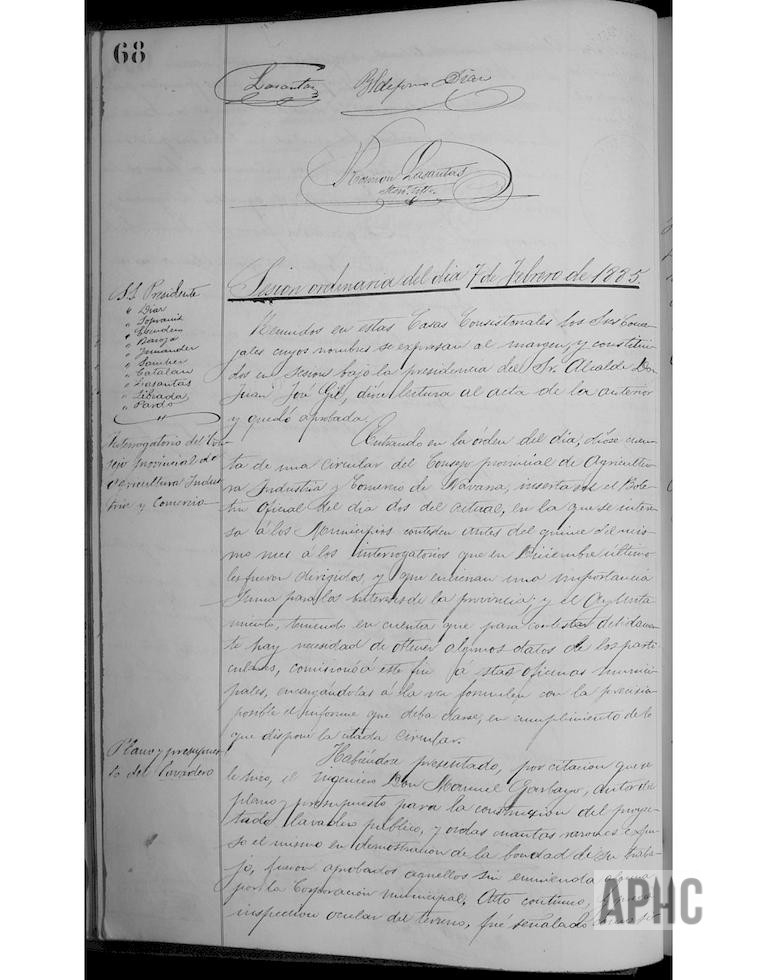 68
Lasantas Yldefonso Diaz
Ramon Lasantas
Sesion ordinaria del dia 7 de Febrero de 1885.
SS. Presidente
" Diaz
" Sopranis
" Escudero
" Baroja
" Fernandez
" Catalan
" Lasantas
" Librada
" Pardo
Reunidos en estas Casas Consistoriales los Sres Conce-
jales cuyos nombres se expresan al margen, y constitui-
dos en Sesion bajo la presidencia del Sr. Alcalde Don
Juan José Gil, dióse lectura al acta de la anterior
y quedó aprobada.
Interrogatorio del Con-
sejo provincial de
Agricultura Indus-
tria y Comercio
Entrando en la órden del dia, dióse cuen-
ta de una circular del Consejo provincial de Agricultu-
ra Industria y Comercio de Navarra, inserta en el Bole-
tin oficial del dia dos del actual, en la que se intere-
sa á los Municipios contesten antes del quince del mis-
mo mes á los interrogatorios que en Diciembre último
les fueron dirigidos, y que encierran una importancia
suma para los intereses de la provincia; y el Ayunta-
miento, teniendo en cuenta que para contestar debidamen-
te hay necesidad de obtener algunos datos de los parti-
culares, comisionó á este fin á stas oficinas munici-
pales, encargándolas á la vez formulen con la precision
posible el informe que deba darse, en cumplimiento de lo
que dispone la citada circular.
Plano y presupues-
to del lavadero
Habiéndose presentado, por citacion que se
le hizo, el ingeniero Don Manuel Garbayo, autor del
plano y presupuesto para la construccion del proyec-
tado lavadero público, y oidas cuantas razones expu-
so el mismo en demostracion de la bondad de su traba-
jo, fueron aprobados aquellos sin enmienda alguna
por la Corporacion municipal. Acto continuo, y previa
inspeccion ocular del terreno, fué señalado
APHC